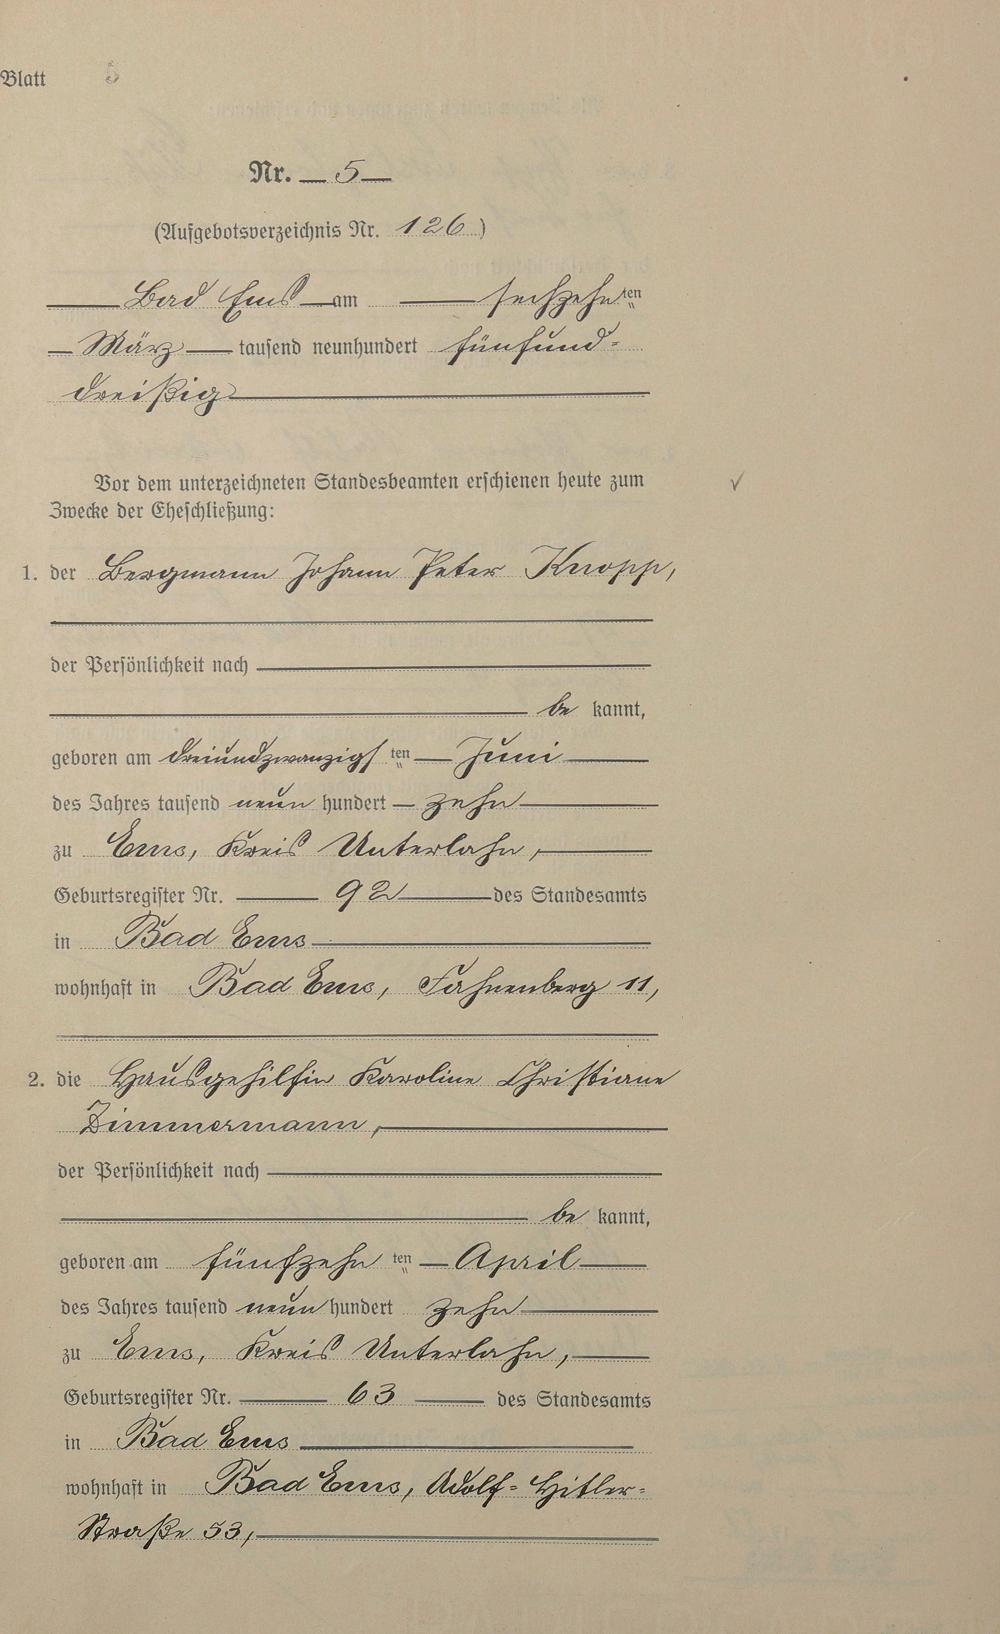 Blatt 5
Nr. 5
(Aufgebotsverzeichnis Nr. 126)
Bad Ems am sechzehnten
März tausend neunhundert fünfund-
dreißig
Vor dem unterzeichneten Standesbeamten erschienen heute zum
Zwecke der Eheschließung:
1. der Bergmann Johann Peter Knopp,
der Persönlichkeit nach
be kannt,
geboren am dreiundzwanzigsten Juni
des Jahres tausend neun hundert zehn
zu Ems, Kreis Unterlahn,
Geburtsregister Nr. 92 des Standesamts
in Bad Ems
wohnhaft in Bad Ems, Fahnenberg 11,
2. die Hausgehilfin Karoline Christiane
Zimmermann,
der Persönlichkeit nach
be kannt,
geboren am fünfzehnten April
des Jahres tausend neun hundert zehn
zu Ems, Kreis Unterlahn,
Geburtsregister Nr. 63 des Standesamts
in Bad Ems
wohnhaft in Bad Ems, Adolf-Hitler-
Straße 53,